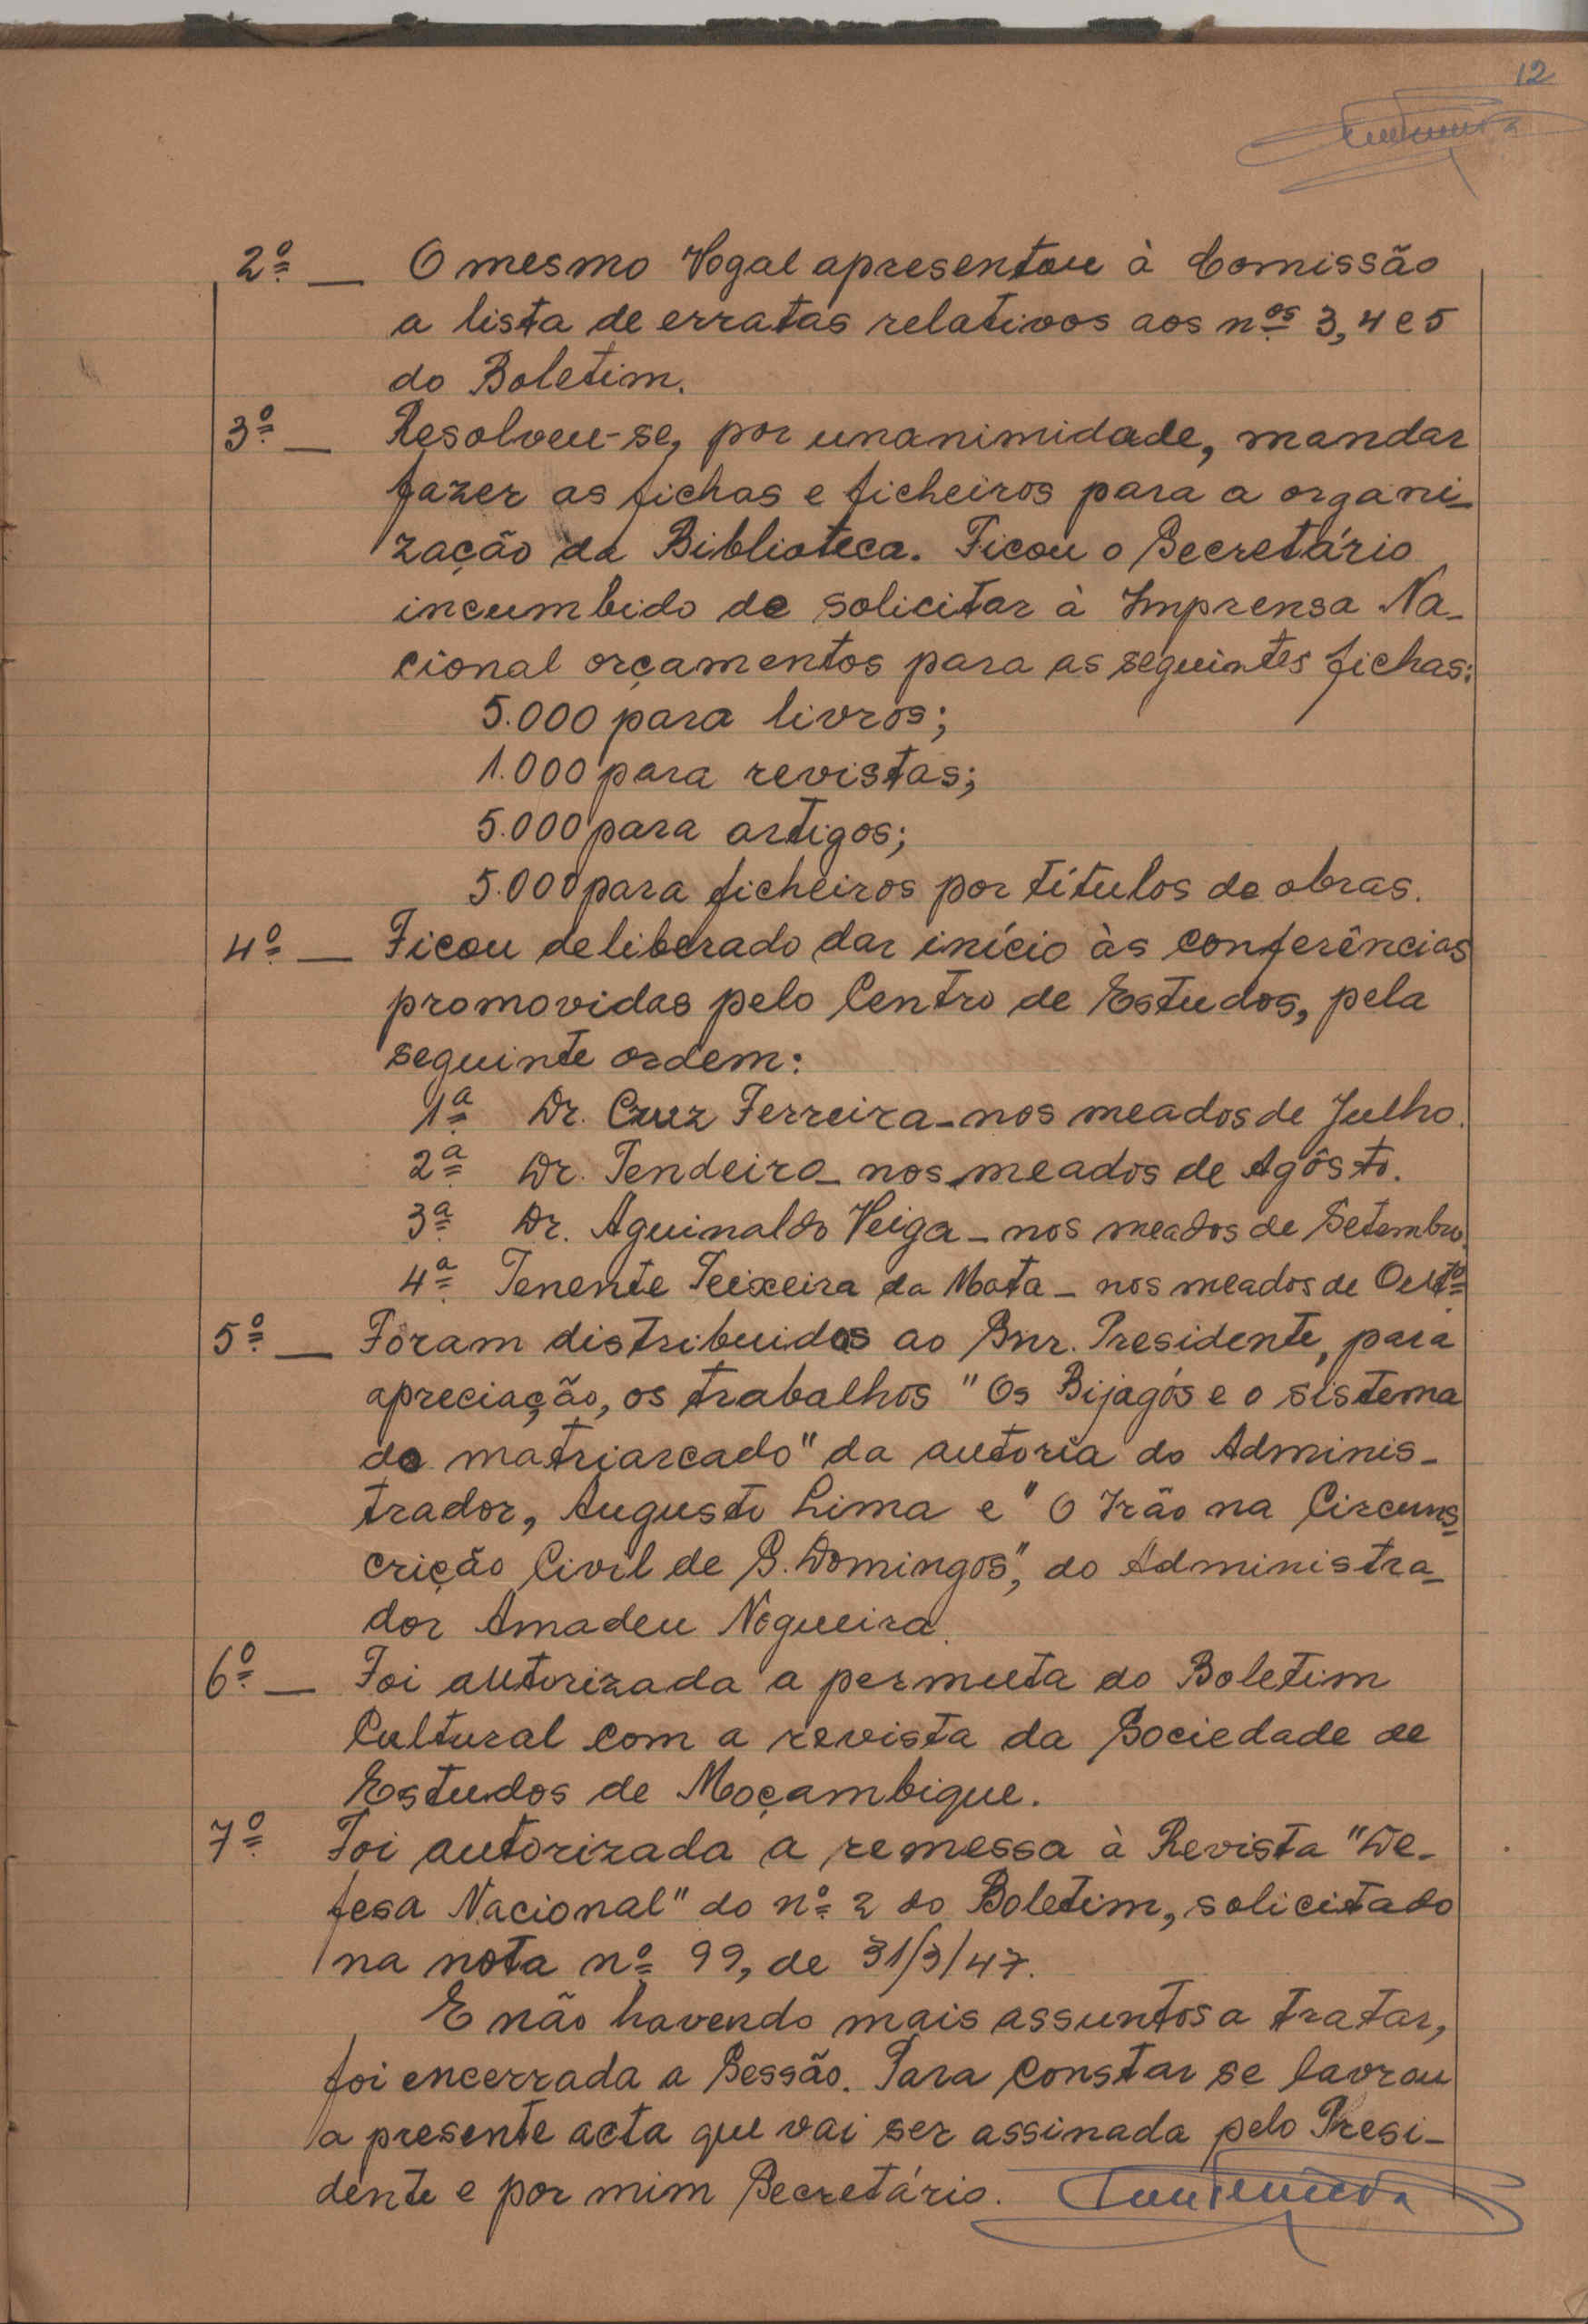 12
2º — O mesmo Vogal apresentou à Comissão
a lista de erratas relativos aos nos 3, 4 e 5
do Boletim.
3º — Resolveu-se, por unanimidade, mandar
fazer as fichas e ficheiros para a organi-
zação da Biblioteca. Ficou o Secretário
incumbido de solicitar à Imprensa Na-
cional orçamentos para as seguintes fichas:
5.000 para livros;
1.000 para revistas;
5.000 para artigos;
5.000 para ficheiros por títulos de obras.
4º — Ficou deliberado dar início às conferências
promovidas pelo Centro de Estudos, pela
seguinte ordem:
1ª Dr. Cruz Ferreira - nos meados de Julho.
2ª Dr. Tendeiro - nos meados de Agôsto.
3ª Dr. Aguinaldo Veiga - nos meados de Setembro.
4ª Tenente Teixeira da Mota - nos meados de Outº
5º — Foram distribuidos ao Snr. Presidente, para
apreciação, os trabalhos "Os Bijagós e o sistema
do matriarcado" da autoria do Adminis-
trador, Augusto Lima e "O Irão na Circuns-
crição Civil de S. Domingos", do Administra-
dor Amadeu Nogueira.
6º — Foi autorizada a permuta do Boletim
Cultural com a revista da Sociedade de
Estudos de Moçambique.
7º Foi autorizada a remessa à Revista "De-
fesa Nacional" do nº 2 do Boletim, solicitado
na nota nº 99, de 31/3/47.
E não havendo mais assuntos a tratar,
foi encerrada a Sessão. Para constar se lavrou
a presente acta que vai ser assinada pelo Presi-
dente e por mim Secretário.